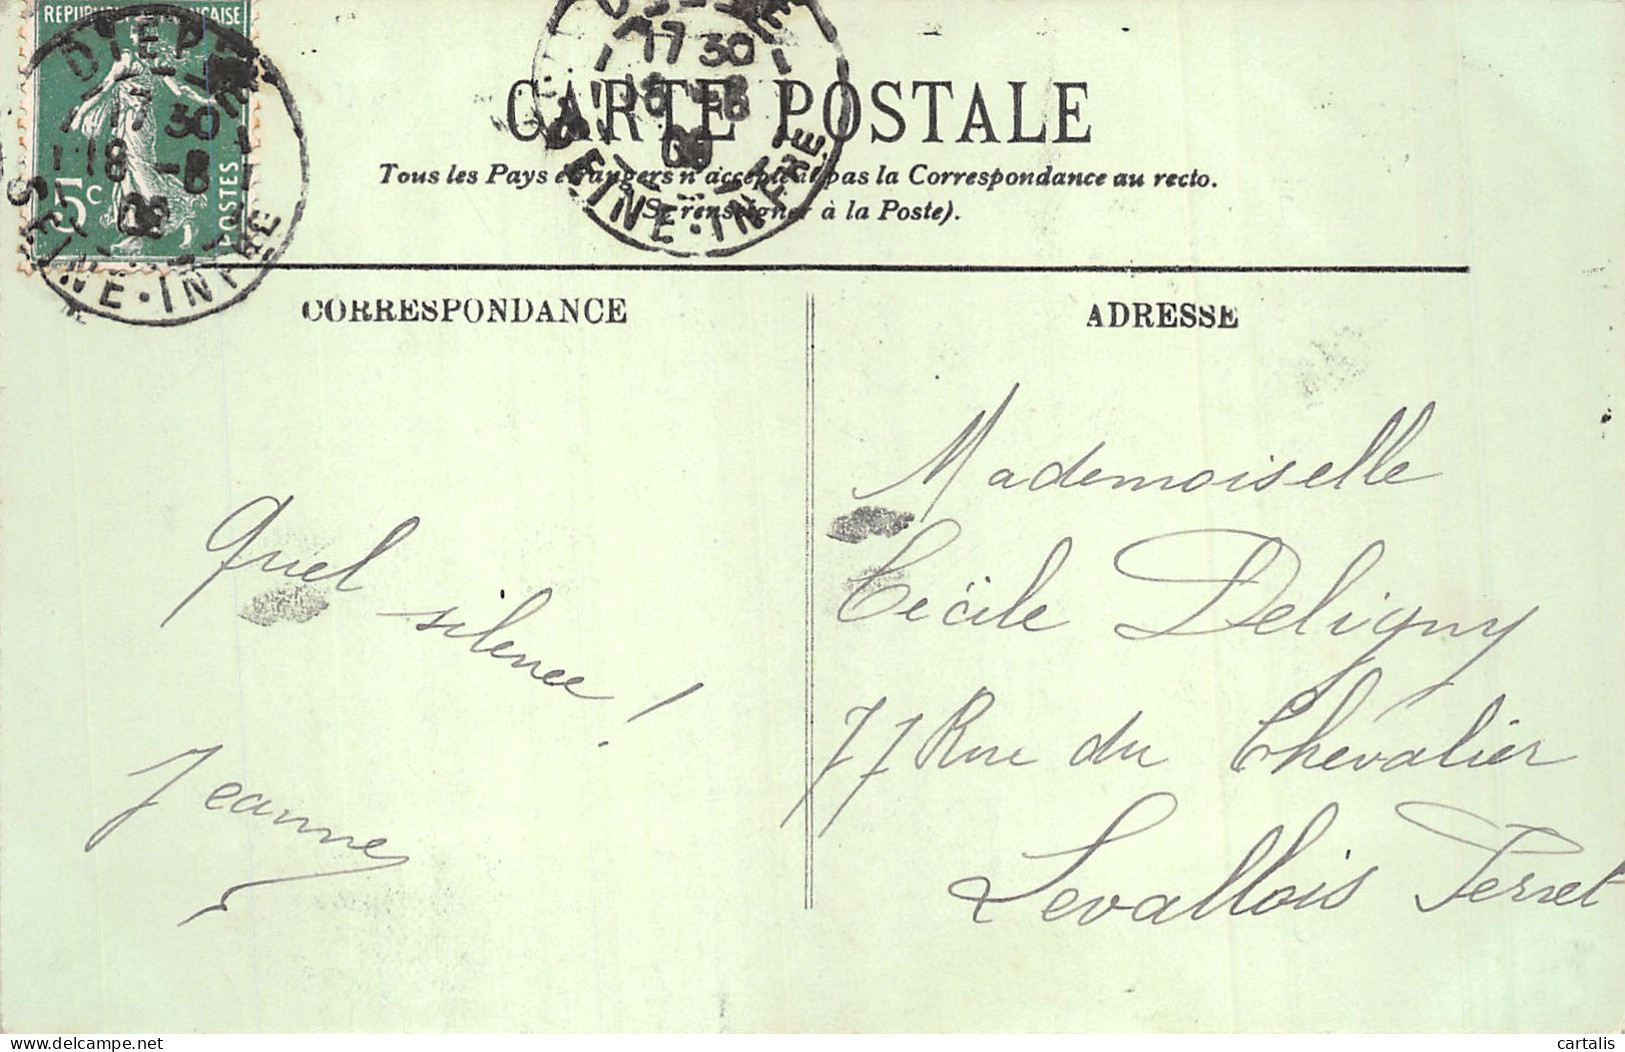 REPUBLIQUE FRANÇAISE
5c
POSTES
DIEPPE
17 30
18 -8
09
SEINE-INFRE
17 30
18 -8
09
SEINE-INFRE
CARTE POSTALE
Tous les Pays étrangers n'acceptent pas la Correspondance au recto.
(Se renseigner à la Poste).
CORRESPONDANCE
ADRESSE
Quel silence !
Jeanne
Mademoiselle
Cécile Deligny
77 Rue du Chevalier
Levallois Perret
delcampe.net
cartalis